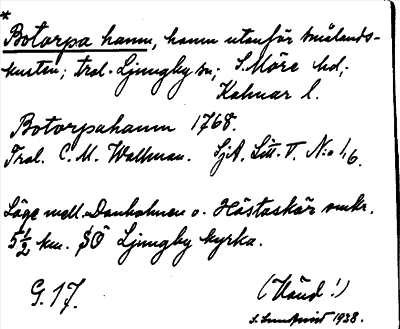 *
Botorpa hamn, hamn utanför Smålands-
kusten; trol. Ljungby sn; S. Möre hd;
Kalmar l.
Botorpahamn 1768.
Trol. C. M. Wallman. SjA. Litt. V. N:o 16.
Läge mell. Danholmen o. Hästaskär omkr.
5½ km. SÖ Ljungby kyrka.
G. 17. (Vänd!)
1938.